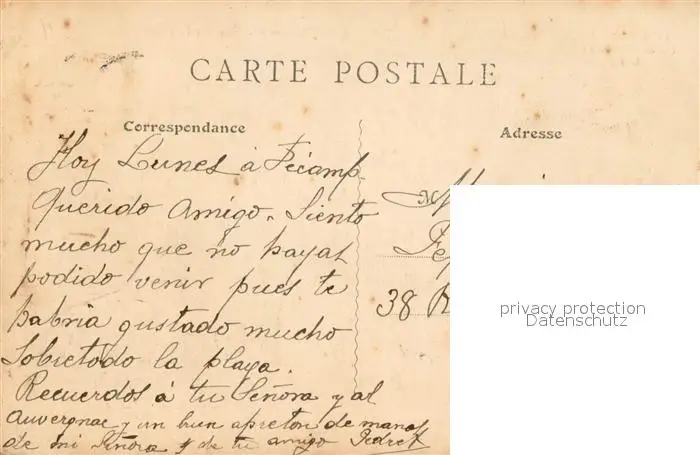 CARTE POSTALE
Correspondance
Adresse
Hoy Lunes á Fécamp
Querido Amigo. Siento
mucho que no hayas
podido venir pues te
habria gustado mucho
Sobretodo la playa.
Recuerdos á tu Señora y al
Auvergnac y un buen apreton de manos
de mi Señora y de tu amigo
38
privacy protection
Datenschutz